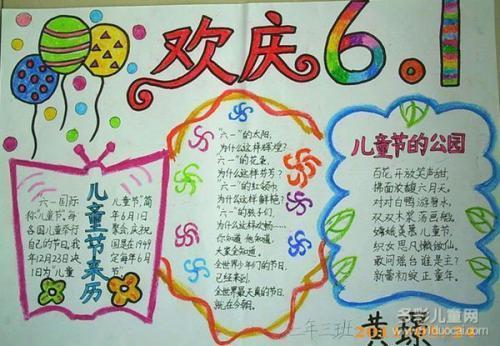 欢庆6.1
儿童节来历
六一国际
称"儿童节",每
各国儿童举行
自己的节日,我
年12月23日决
1日为"儿童
儿童节"简
年6月1日
聚会,庆祝
国是在1949
定每年6月
节"。
"六一"的太阳,
为什么这样辉煌?
"六一"的花龛,
为什么这样芬芳?
"六一"的红领巾
为什么这样鲜艳?
"六一"的孩子们,
为什么这样欢畅……
你知道 他知道,
大家全知道。
全世界少年们的节日,
已经来到,
全世界最天真的节日,
就在今朝。
儿童节的公园
百花开放笑声甜,
拂面浓馥六月天。
对对白鸭游碧水,
双双木桨荡画船。
织女思凡懒做仙。
敢问瑶台谁是主?
新蕾初绽正童年。
二年三班
黄璟
多彩儿童网